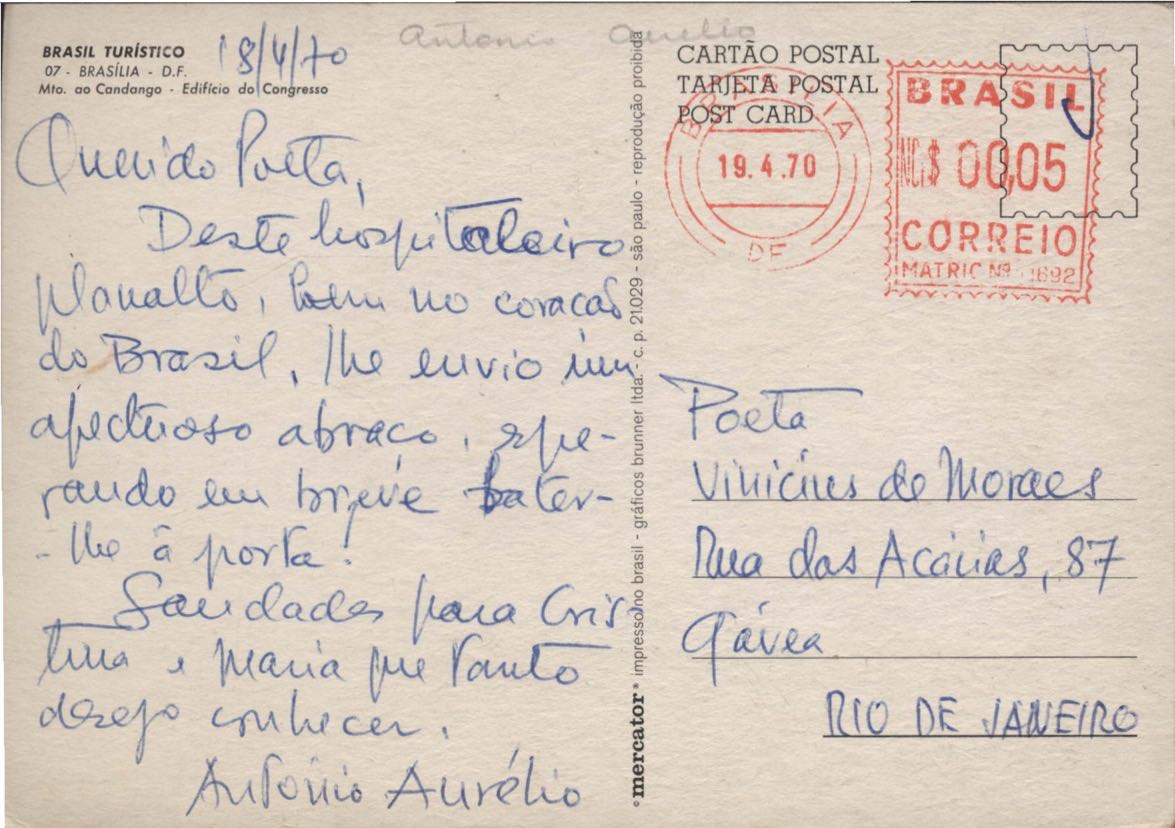 Antonio Aurelio
BRASIL TURÍSTICO
07 - BRASÍLIA - D.F.
Mto. ao Candango - Edifício do Congresso
18/4/70
Querido Poeta,
Deste hospitaleiro
planalto, bem no coração
do Brasil, lhe envio um
afectuoso abraço, espe-
rando em breve bater-
-lhe à porta.
Saudades para Cris-
tina e Maria que tanto
desejo conhecer.
António Aurélio
mercator impresso no brasil - gráficos brunner ltda. - c. p. 21.029 - são paulo - reprodução proibida
CARTÃO POSTAL
TARJETA POSTAL
POST CARD
BRASILIA
19.4.70
DF
BRASIL
NCr$ 00,05
CORREIO
MATRIC Nº 1692
Poeta
Vinicius de Moraes
Rua das Acácias, 87
Gávea
RIO DE JANEIRO